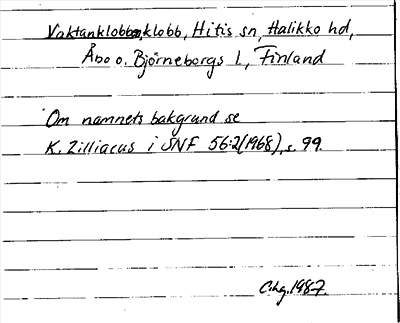 Vaktanklobben, klobb, Hitis sn, Halikko hd,
Åbo o. Björneborgs l., Finland
Om namnets bakgrund se
K. Zilliacus i SNF 56:2(1968), s. 99.
1987.